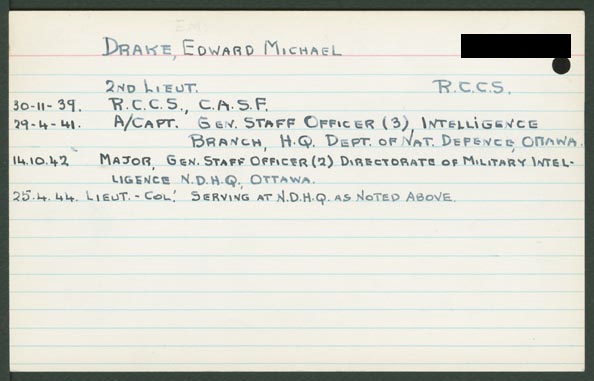 DRAKE, EDWARD MICHAEL
2ND LIEUT. R.C.C.S.
30-11-39. R.C.C.S., C.A.S.F.
29-4-41. A/CAPT. GEN. STAFF OFFICER (3), INTELLIGENCE
BRANCH, H.Q. DEPT. OF NAT. DEFENCE, OTTAWA.
14.10.42 MAJOR, GEN. STAFF OFFICER (2) DIRECTORATE OF MILITARY INTEL-
LIGENCE N.D.H.Q., OTTAWA.
25.4.44. LIEUT.-COL. SERVING AT N.D.H.Q. AS NOTED ABOVE.